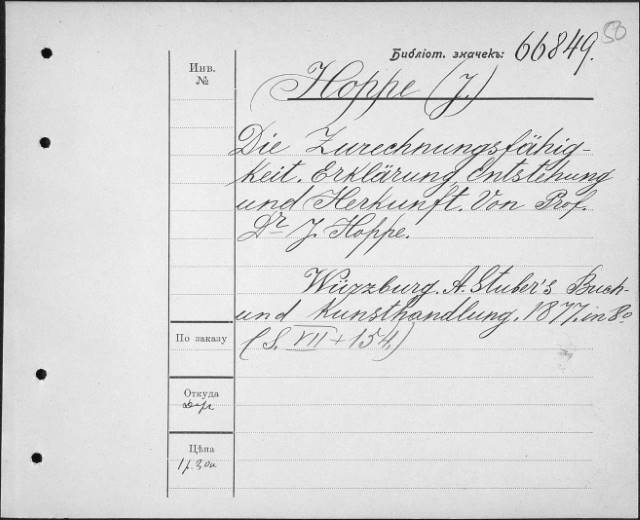 50
Библіот. значекъ: 66849.
Инв.
№
Hoppe (J.)
Die Zurechnungsfähig-
keit. Erklärung, Entstehung
und Herkunft. Von Prof.
Dr J. Hoppe.
Würzburg. A. Stuber's Buch-
und Kunsthandlung. 1877. in 8o
(S. VII + 154.)
По заказу
Откуда
Цѣна